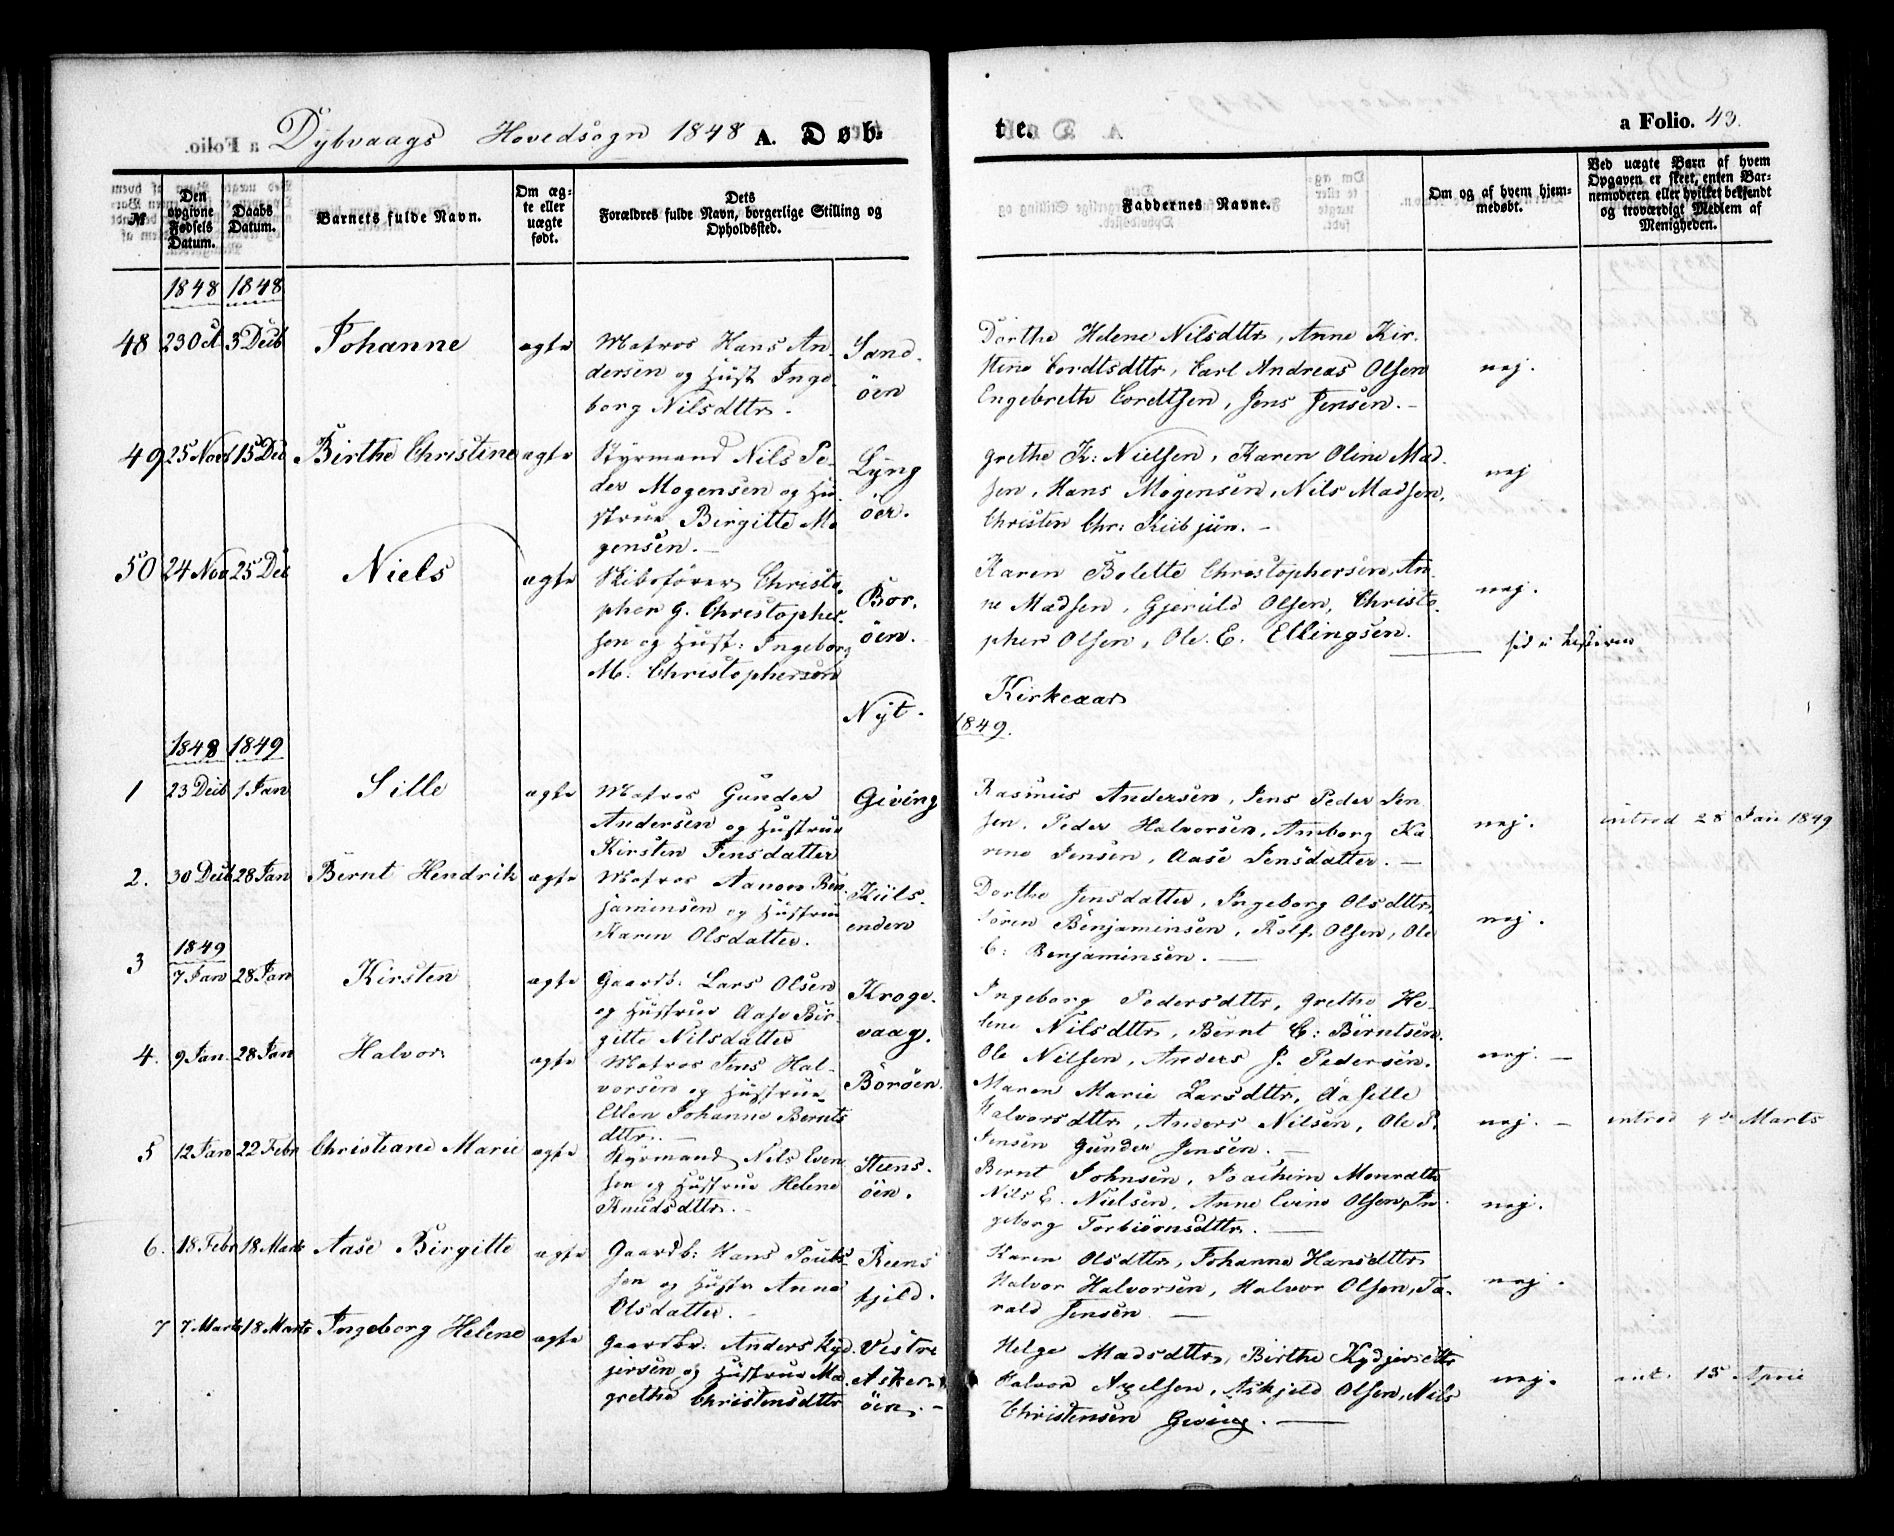 Dybvaags Hovedsogn 1848 A. Døb-
te. a Folio. 43.
№
Den opgivne Fødsels Datum.
Daabs Datum.
Barnets fulde Navn.
Om ægte eller uægte født.
Dets Forældres fulde Navn, borgerlige Stilling og Opholdssted.
Faddernes Navne.
Om og af hvem hjemmedøbt.
Ved uægte Barn af hvem Opgaven er skeet, enten Barnemoderen eller hvilket bekjendt og troværdigt Medlem af Menigheden.
1848 1848
48 23 Oct 3 Decb Johanne ægte
Matros Hans An-
dersen og Hust Inge-
borg Nilsdttr.
Sand-
öen
Dorthe Helene Nilsdttr, Anne Kir-
stine Cordtsdttr, Carl Andreas Olsen
Engebreth Cordtsen, Jens Jensen. –
nej.
49 25 Novb 15 Dec Birthe Christine ægte
Styrmand Nils Pe-
der Mogensen og Hu-
strue Birgitte Mo
gensen. –
Lyng
öer.
Grethe K: Nielsen, Karen Oline Mad-
sen, Hans Mogensen, Nils Madsen,
Christen Chr: jun. –
nej
50 24 Nov 25 Dec Niels ægte
Skibsfører Christo-
pher G. Christopher-
sen og Hust: Ingeborg
M. Christophersen
Bor-
öen.
Karen Bolette Christophersen, An-
ne Madsen, Gjeruld Olsen, Christo-
pher Olsen, Ole E. Ellingsen.
nej.
Nyt. Kirkeaar
1849.
1848 1849
1 23 Decb 1 Jan Sille ægte
Matros Gunder
Andersen og Hustrue
Kirsten Jensdatter
Giving
Rasmus Andersen, Jens Peder Jen
sen, Peder Halvorsen, Amborg Ka-
rine Jensen, Aase Jensdatter. –
nej. introd 28 Jan 1849
2. 30 Decb 28 Jan Bernt Hendrik ægte
Matros Aanon Ben-
jaminsen og Hustrue
Karen Olsdatter.
Kiils-
enden
Dorthe Jensdatter, Ingeborg Olsdttr,
Sören Benjaminsen, Rolf Olsen, Ole
C: Benjaminsen. –
nej.
1849
3 7 Jan 28 Jan Kirsten ægte
Gaardb. Lars Olsen
og Hustrue Aase Bir-
gitte Nilsdatter
Kroge-
vaag.
Ingeborg Pedersdttr, Grethe He-
lene Nilsdttr, Bernt C: Berntsen.
Ole Nilsen, Anders J. Pedersen.
nej. –
4. 9 Jan. 28 Jan Halvor ægte
Matros Jens Hal-
vorsen og Hustrue
Ellen Johanne Bernts
dttr. –
Boröen.
Maren Marie Larsdttr, Aaselle
Halvorsdttr, Anders Nilsen, Ole P.
Jensen Gunder Jensen. –
nej. – introd 4de Marts
5 12 Jan 22 Febr Christiane Marie ægte
Styrmand Nils Even
sen og Hustrue Helene
Knudsdttr. –
Steens-
öen.
Bernt Johnsen, Joachim Monrath
Nils E. Nielsen, Anne Evine Olsen, In
geborg Torbiörnsdttr. –
nej.
6. 18 Febr 18 Marts Aase Birgitte ægte
Gaardb: Hans Pouls-
sen og Hustr Anne
Olsdatter. –
Reens
kjeld.
Karen Olsdttr, Johanne Hansdttr
Halvor Halvorsen, Halvor Olsen, Ta-
rald Jensen –
nej.
7 7 Marts 18 Marts Ingeborg Helene ægte
Gaardbr. Anders Kyd-
jersen og Hustrue Ma-
grethe Christensdttr
Vestre
Asker-
öen. –
Helge Madsdttr, Birthe Kydjersdttr
Halvor Axelsen, Askjeld Olsen, Nils
Christensen Geving. –
nej. int. 15 April